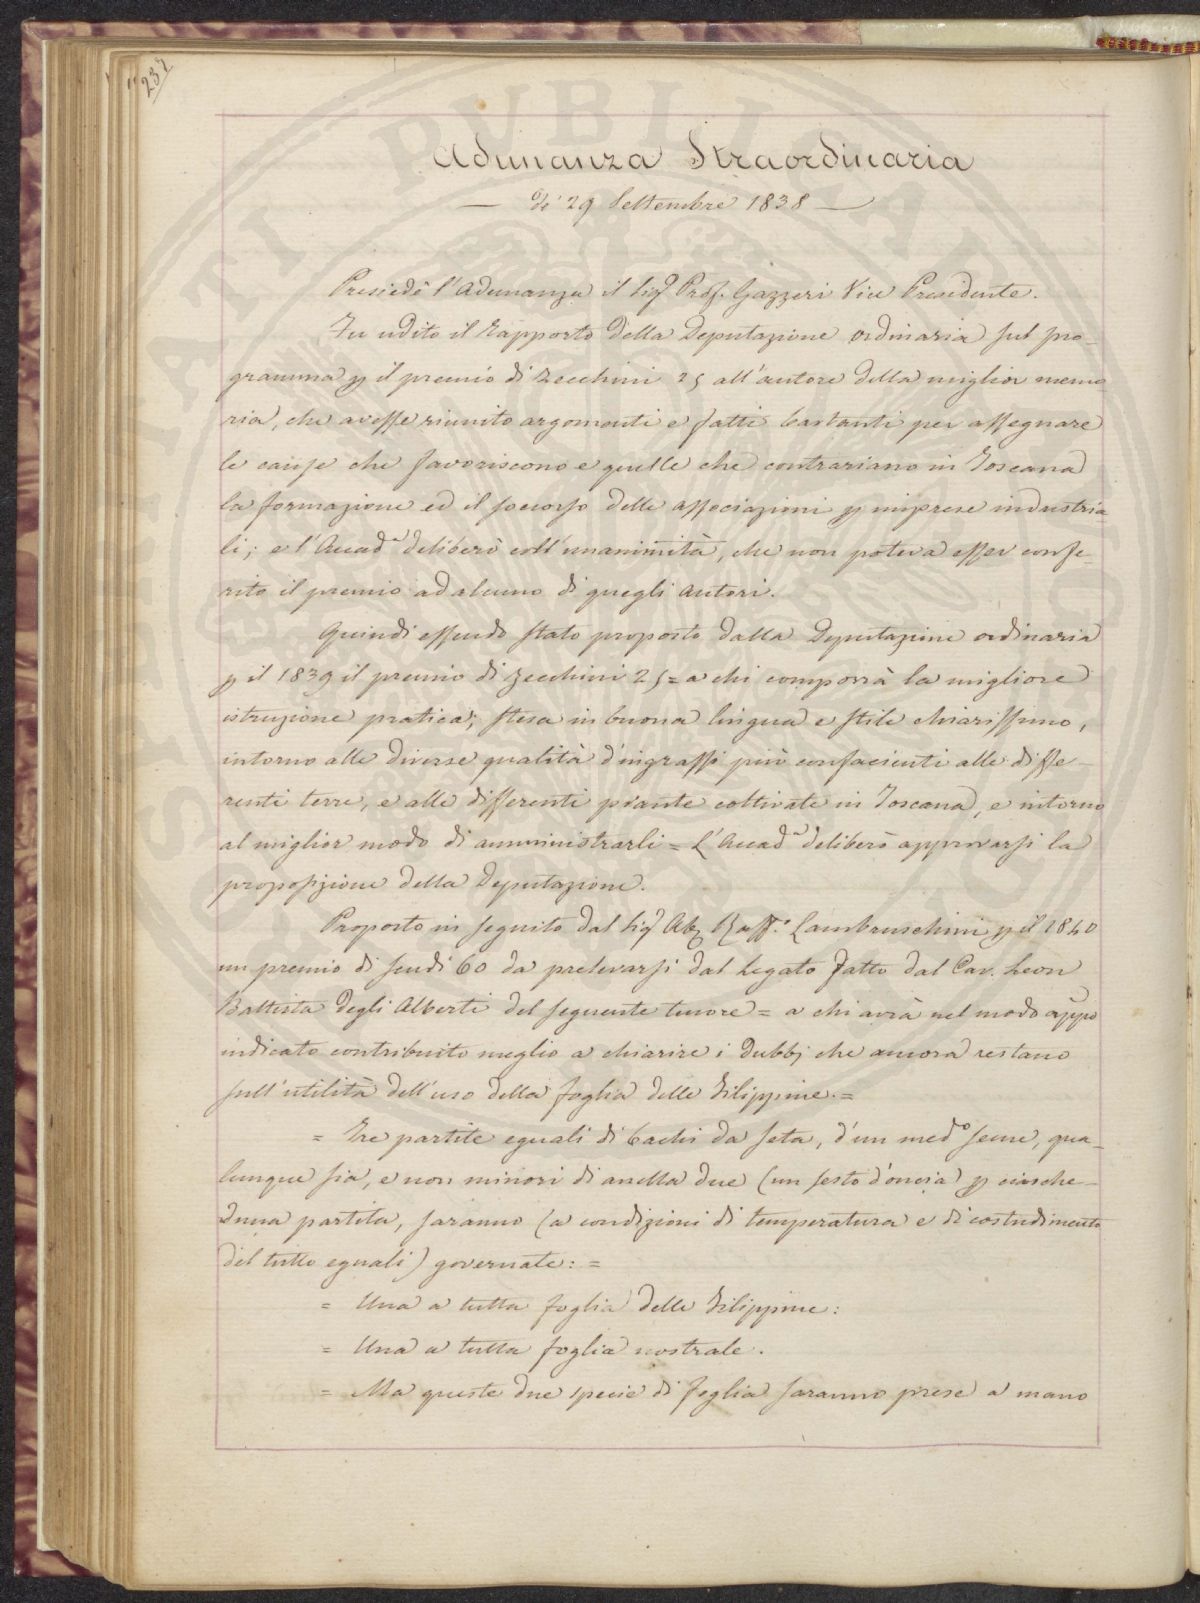 232
Adunanza Straordinaria
— de' 29 Settembre 1838 —
Presiedè l'Adunanza il Sigr Prof. Gazzeri Vice Presidente.
Fu udito il rapporto della Deputazione ordinaria sul pro-
gramma p il premio di zecchini 25 all'autore della miglior memo
ria, che avesse riunito argomenti e fatti bastanti per assegnare
le cause che favoriscono e quelle che contrariano in Toscana
la formazione ed il soccorso delle associazioni p imprese industria
li; e l'Accada deliberò coll'unanimità, che non poteva esser confe-
rito il premio ad alcuno di quegli autori.
Quindi essendo stato proposto dalla Deputazione ordinaria
p il 1839 il premio di zecchini 25 = a chi comporrà la migliore
istruzione pratica; stesa in buona lingua e stile chiarissimo,
intorno alle diverse qualità d'ingrassi più confacienti alle diffe-
renti terre, e alle differenti piante coltivate in Toscana, e intorno
al miglior modo di amministrarli = L'Accada deliberò approvarsi la
proposizione della Deputazione.
Proposto in seguito dal Sigr Ab. Raff.e Lambruschini p il 1840
un premio di scudi 60 da prelevarsi dal Legato fatto dal Cav. Leon
Battista degli Alberti del seguente tenore = a chi avrà nel modo appo
indicato contribuito meglio a chiarire i dubbj che ancora restano
sull'utilità dell'uso della foglia delle Filippine. =
= Tre partite eguali di bachi da seta, d'un medo seme, qua-
lunque sia, e non minori di anella due (un sesto d'oncia) pciasche-
duna partita, saranno (a condizioni di temperatura e di costudimento
del tutto eguali) governate: =
= Una a tutta foglia delle Filippine:
= Una a tutta foglia nostrale.
= Ma queste due specie di foglia saranno prese a mano